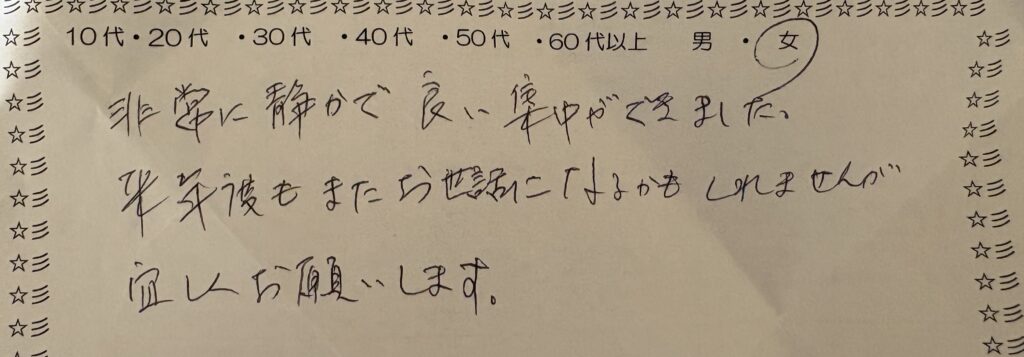 10代・20代 ・30代 ・40代 ・50代 ・60代以上 男 ・ 女
非常に静かで良い集中ができました。
半年後もまたお世話になるかもしれませんが
宜しくお願いします。